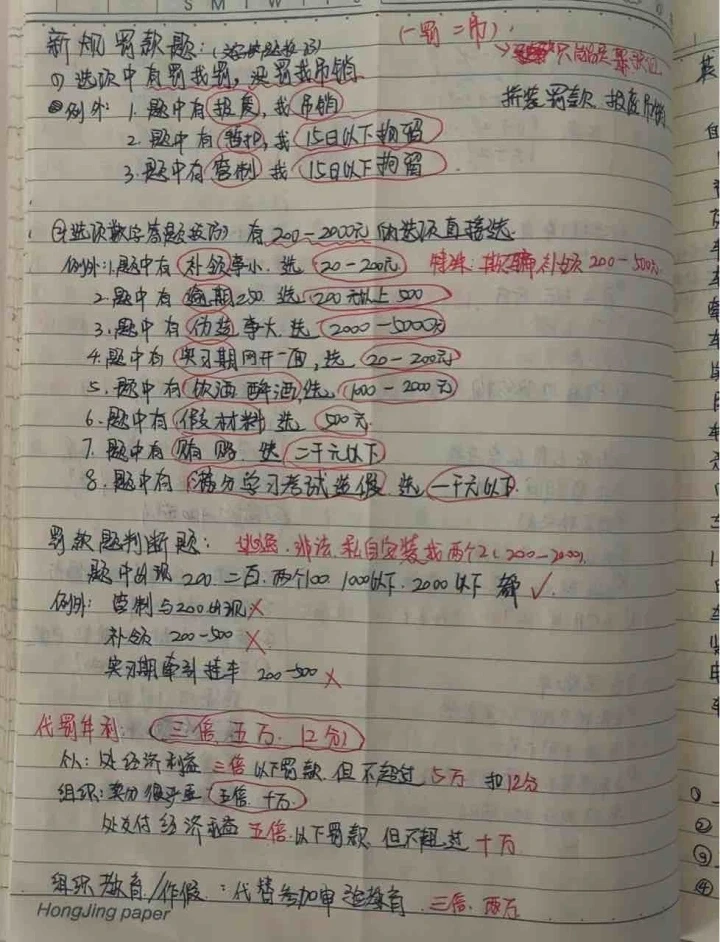 S M T W T F S
新规罚款题:
(一罚二吊)
① 选项中有罚找罚,没罚找吊销
例外: 1. 题中有报废,找吊销
拼装 罚款. 报废吊销
2. 题中有暂扣,找 15日以下拘留
3. 题中有管制 找 15日以下拘留
有200-2000元的选项直接选.
例外:1.题中有补领事小. 选 20-200元
特殊: 补领 200-500元
2. 题中有逾期 选 200元以上 500
3. 题中有伪造事大. 选 2000-5000元
4. 题中有实习期网开一面,选 20-200元
5. 题中有饮酒 醉酒,选 1000-2000元
6. 题中有假材料 选 500元
7. 题中有贿赂 选 二千元以下
8. 题中有满分学习考试造假. 选 一千元以下.
罚款题判断题: 逃逸. 非法. 私自安装找两个2(200-2000).
题中出现 200. 二百. 两个100. 1000以下. 2000以下 都 ✓.
例外: 管制与200出现 ×
补领 200-500 ×
实习期牵引挂车 200-500 ×
代罚牟利: (三倍 五万. 12分)
个人: 处经济利益 三倍以下罚款. 但不超过 5万 扣12分
组织: 卖分很严重 五倍 十万.
处支付经济利益 五倍以下罚款 但不超过 十万
组织教育/作假 : 代替参加审验教育 三倍. 两万
HongJing paper
①
②
③
④